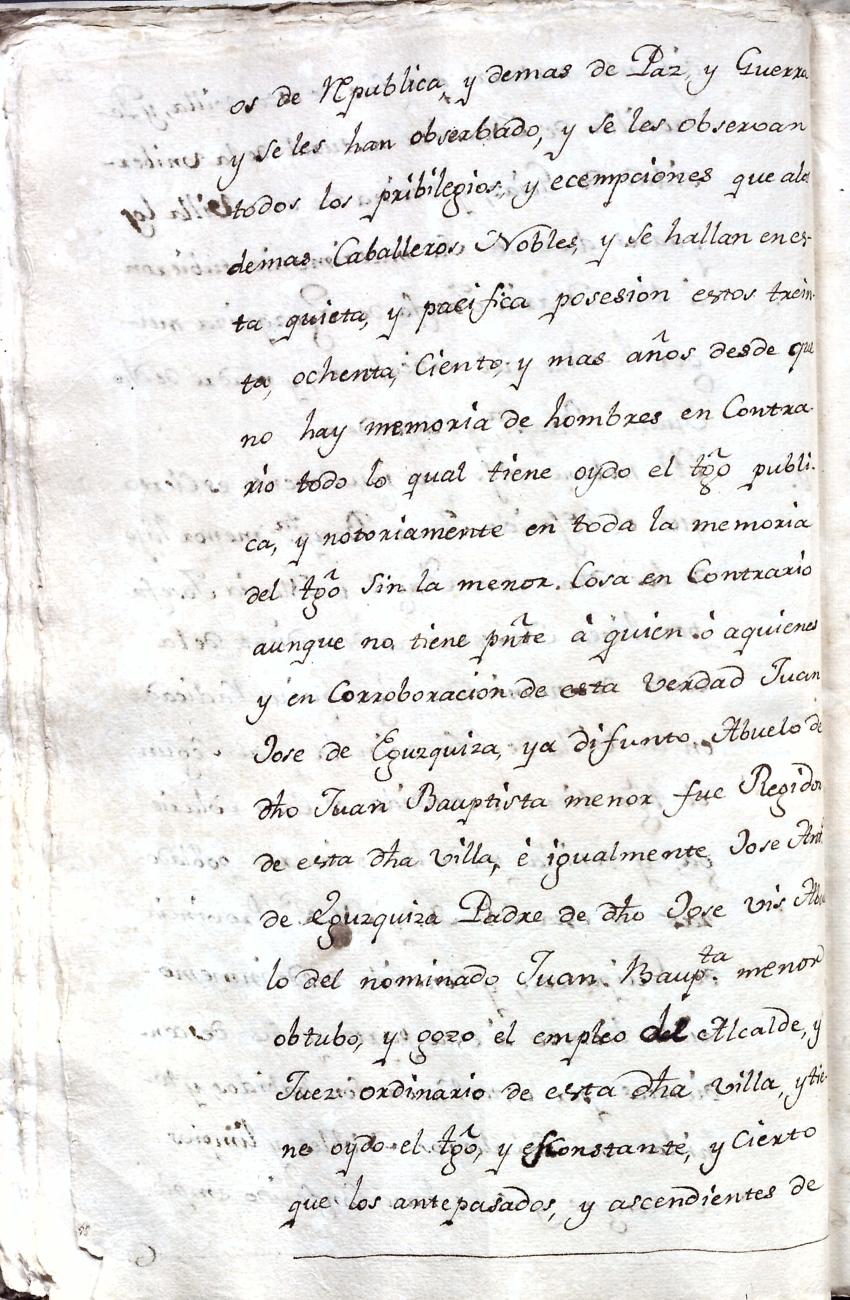 os de Rpublica, y demas de Paz, y Guerra
y se les han obserbado, y se les observan
todos los pribilegios, y ecempciones que alos
demas Caballeros Nobles, y se hallan en es-
ta quieta, y pacifica posesion estos trein-
ta, ochenta, Ciento, y mas años desde que
no hay memoria de hombres en Contra-
rio todo lo qual tiene oydo el tgõ publi-
ca, y notoriamente en toda la memoria
del tgõ Sin la menor Cosa en Contrario
aunque no tiene pñte à quien ò aquienes
y en Corroboracion de esta verdad Juan
Jose de Eguzquiza, ya difunto, Abuelo de
dho Juan Bauptista menor fue Regidor
de esta dha villa, è igualmente Jose Ant
de Eguzquiza Padre de dho Jose vis Abue
lo del nominado Juan Baupta menor
obtubo, y gozo el empleo del Alcalde, y
Juez ordinario de esta dha villa, y tie-
ne oydo el tgõ, y es Constante, y Cierto
que los antepasados, y ascendientes de